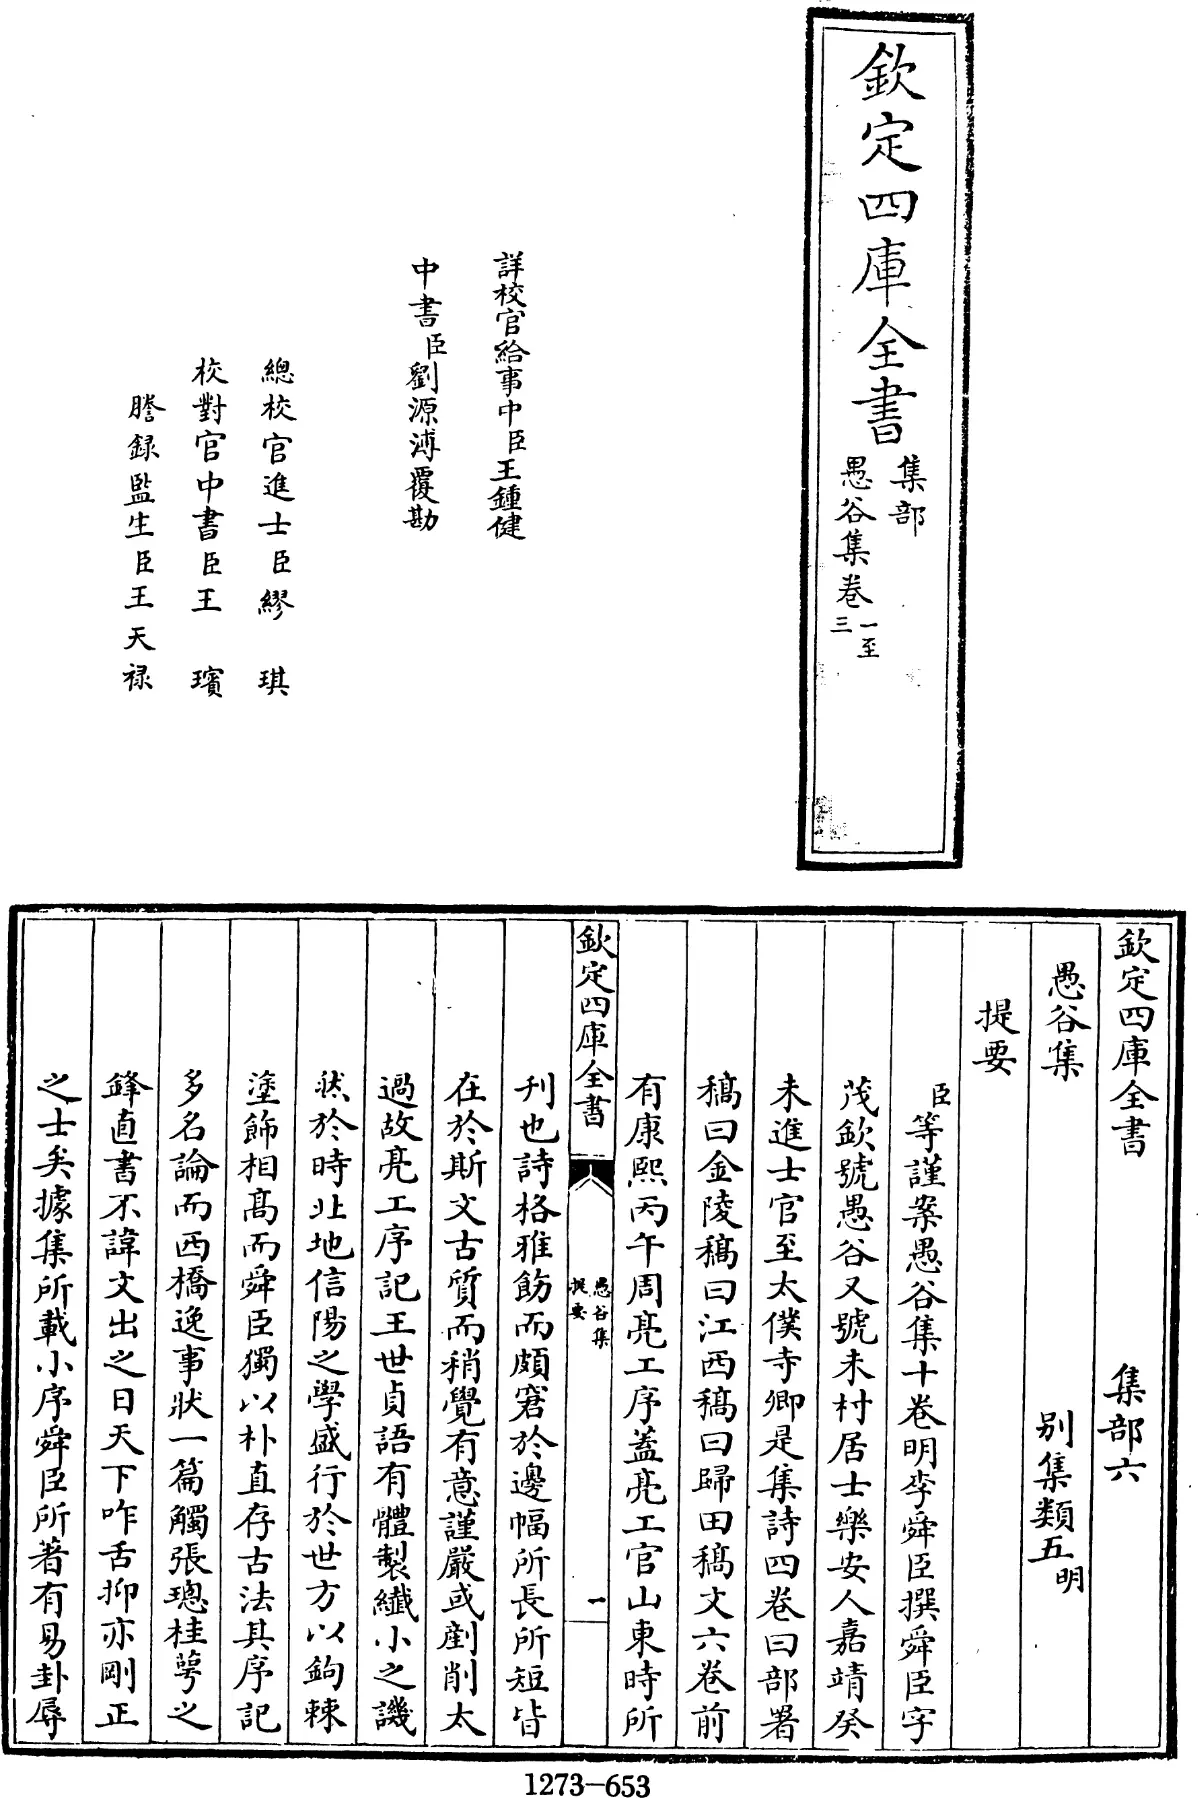 欽定四庫全書
集部
愚谷集卷一至三
詳校官給事中臣王鍾健
中書臣劉源溥覆勘
總校官進士臣繆琪
校對官中書臣王璸
謄録監生臣王天禄
欽定四庫全書 集部六
愚谷集 别集類五明
提要
臣等謹案愚谷集十卷明李舜臣撰舜臣字
茂欽號愚谷又號未村居士樂安人嘉靖癸
未進士官至太僕寺卿是集詩四卷曰部署
稿曰金陵稿曰江西稿曰歸田稿文六卷前
有康熙丙午周亮工序蓋亮工官山東時所
欽定四庫全書
愚谷集
提要
一
刊也詩格雅飭而頗窘於邊幅所長所短皆
在於斯文古質而稍覺有意謹嚴或剷削太
過故亮工序記王世貞語有體製纖小之譏
然於時北地信陽之學盛行於世方以鉤棘
塗飾相髙而舜臣獨以朴直存古法其序記
多名論而西橋逸事狀一篇觸張璁桂萼之
鋒直書不諱文出之日天下咋舌抑亦剛正
之士矣據集所載小序舜臣所著有易卦辱
1273-653